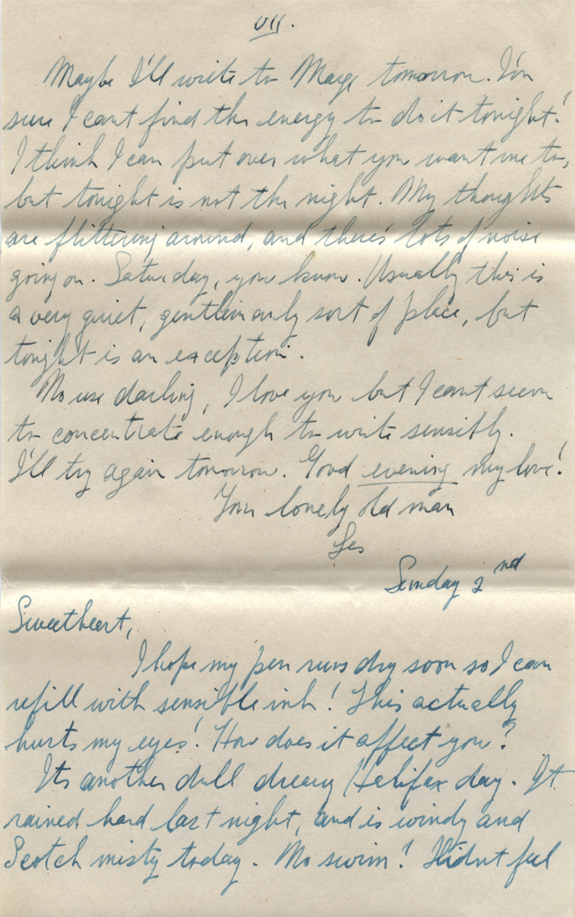 VII.
Maybe I'll write to Marge tomorrow. I'm
sure I cant find the energy to do it tonight!
I think I can put over what you want me to,
but tonight is not the night. My thoughts
are flittering around, and there's lots of noise
going on. Saturday, you know. Usually this is
a very quiet, gentlemanly sort of place, but
tonight is an exception.
No use darling, I love you but I cant seem
to concentrate enough to write sensibly.
I'll try again tomorrow. Good evening my love!
Your lonely old man
Les
Sunday 2nd
Sweetheart,
I hope my pen runs dry soon so I can
refill with sensible ink! This actually
hurts my eyes! How does it affect you?
Its another dull dreary Halifax day. It
rained hard last night, and is windy and
Scotch misty today. No swim! Didnt feel